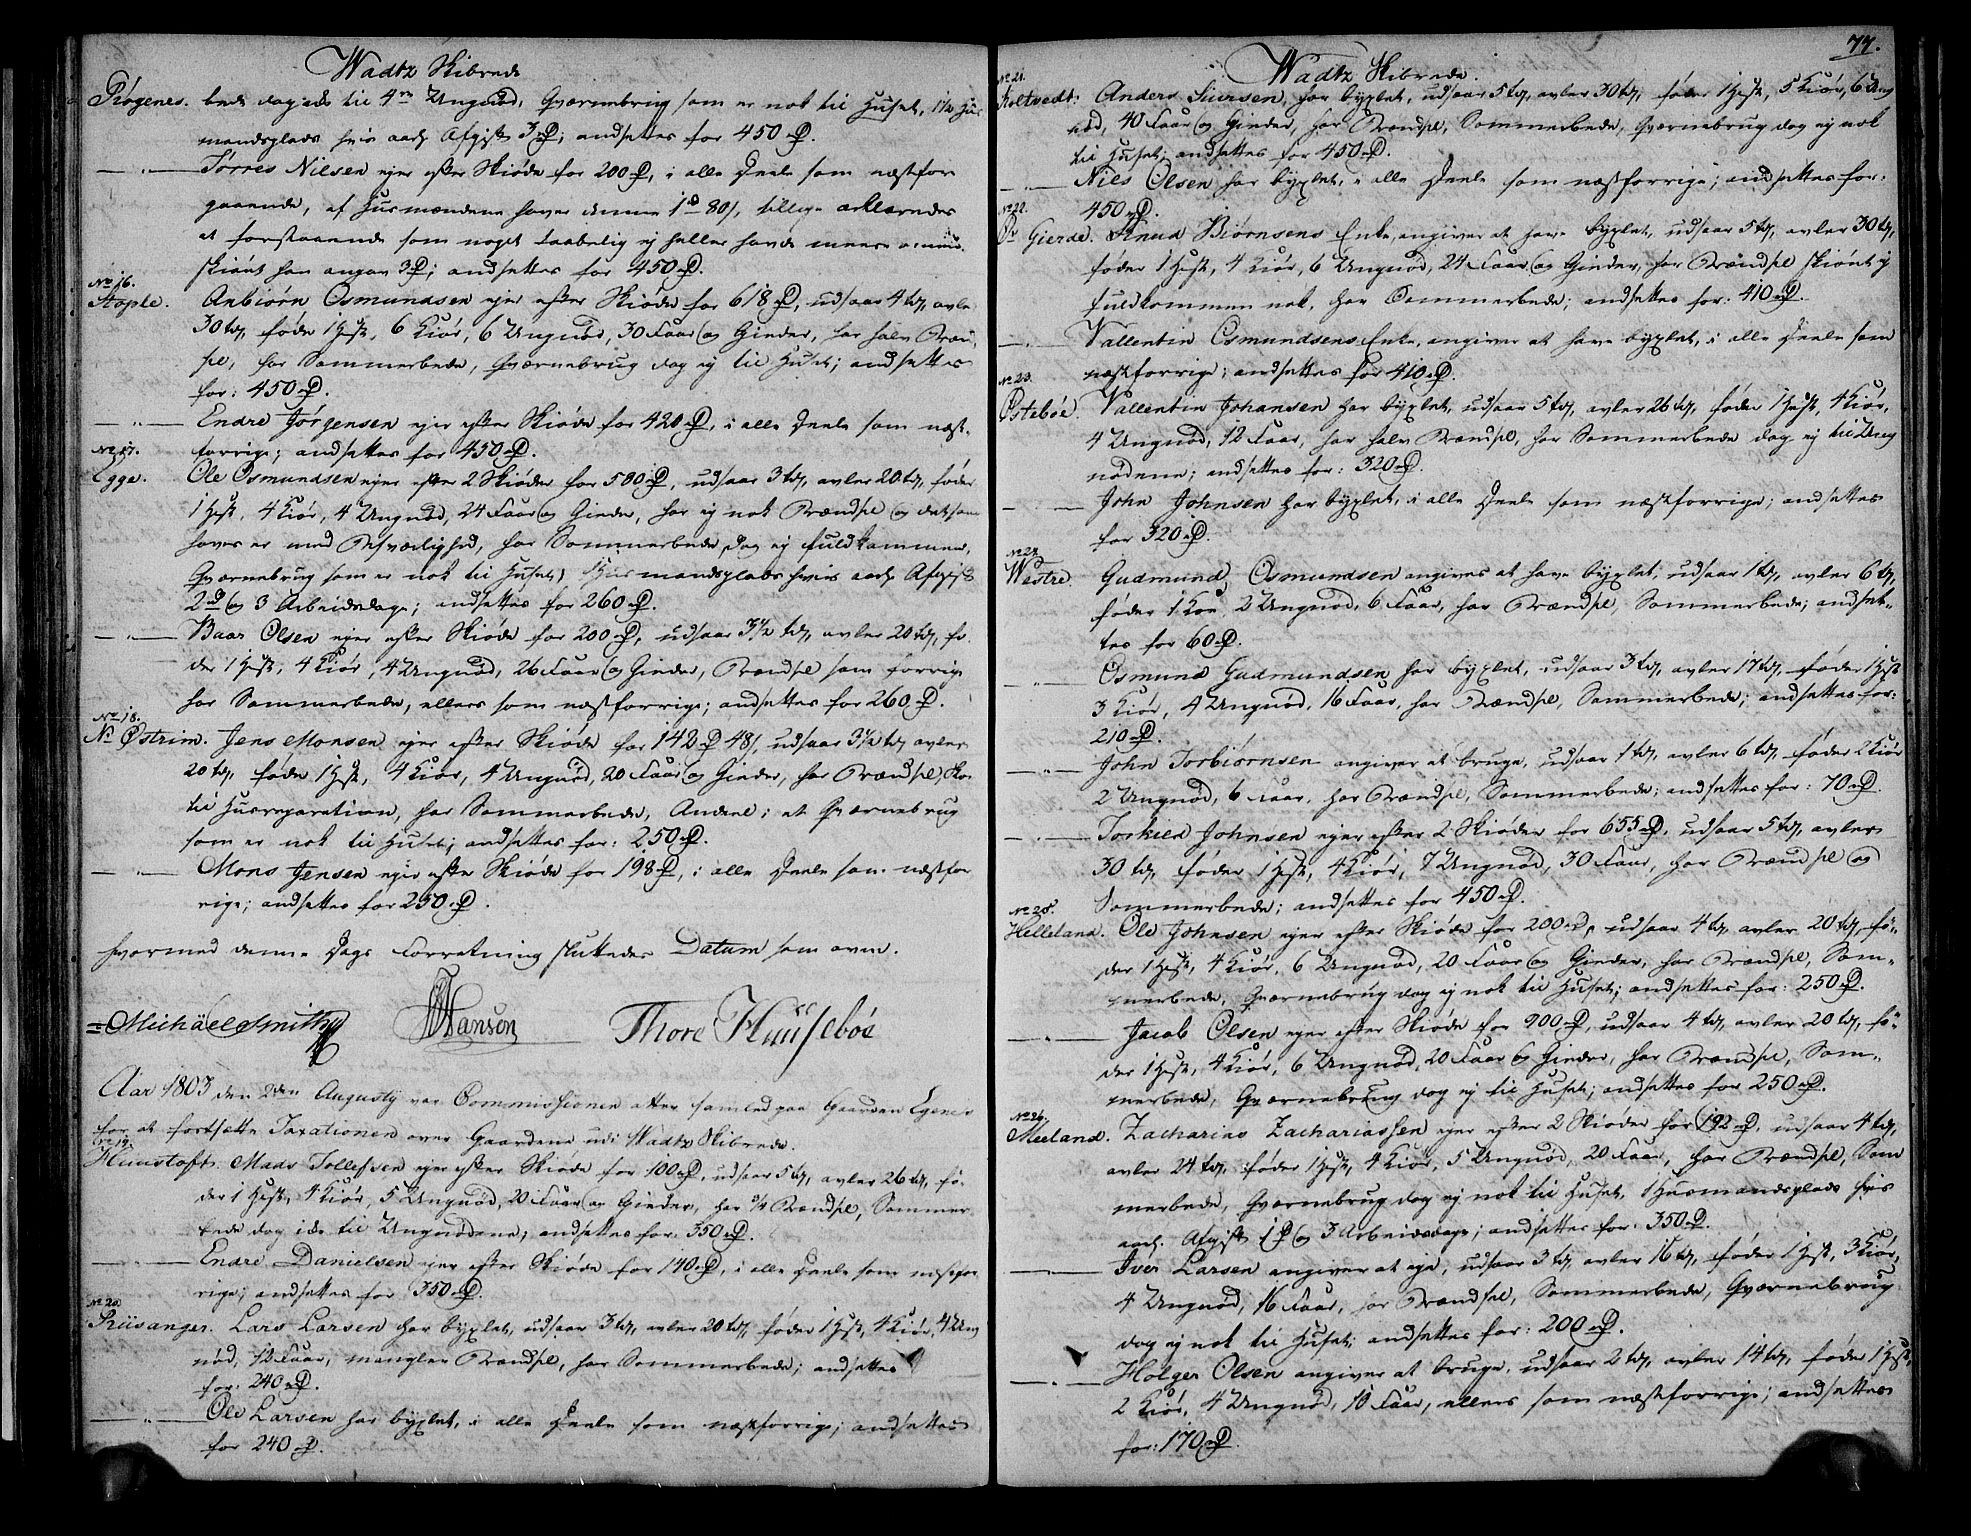 Wadtz Skibrede
Rørgenes. bede dog ick til 4re Ungnød, Qværnebrug som er nok til Huset, 1 1/2 Huus
mandsplads hvis aarl Afgift 3 rd; andsettes for 450 rd.
Torres Nilsen ejer efter Skiøde for 200 rd, i alle Deele som næstfore
gaaende, af Husmændene haver denne 1 rd 80 s, tillige erklæredes
at forstaaende som noget taabelig ej heller havde meere
skiønt han angav 3 rd; andsettes for 450 rd.
No 16.
Stople. Anbiørn Osmundsen ejer efter Skiøde for 618 rd, udsaar 4 td, avler
30 td, føde 1 Hest, 6 Kiør, 6 Ungnød, 30 Faar og Gieder, har halv Brænd
sel, har Sommerbede, Qværnebrug dog ej til Huset; andsettes
for: 450 rd.
Endre Jørgensen ejer efter Skiøde for 420 rd, i alle Deele som næst-
forrige; andsettes for 450 rd.
No 17.
Egge. Ole Osmundsen ejer efter 2 Skiøder for 500 rd, udsaar 3 td, avler 20 td, føder
1 Hest, 4 Kiør, 4 Ungnød, 24 Faar og Gieder, har ej nok Brændsel og det som
haves er med Besværlighed, har Sommerbede dog ej fuldkommen,
Qværnebrug som er nok til Huset, 1 Huusmandsplads hvis aarl Afgift
2 rd og 3 Arbeidsdage; andsettes for 260 rd.
Baar Olsen ejer efter Skiøde for 200 rd, udsaar 3 1/2 td, avler 20 td, fø-
der 1 Hest, 4 Kiør, 4 Ungnød, 26 Faar og Gieder, Brændsel som forrige
har Sommerbede, ellers som næstforrige; andsettes for 260 rd.
No 18.
No Østrim. Jens Monsen ejer efter Skiøde for 142 rd 48 s, udsaar 3 1/2 td avler
20 td, føder 1 Hest, 4 Kiør, 4 Ungnød, 20 Faar og Gieder, har Brændsel, Skov
til Husreparation, har Sommerbede, Andeel i et Qværnebrug
som er nok til Huset; andsettes for: 250 rd.
Mons Jensen ejer efter Skiøde for 198 rd, i alle Deele som næstfor
rige; andsettes for 250 rd.
hvormed denne Dags Forretning sluttedes Datum som oven.
Michael Smith Hanson Thore Huusebøe
Aar 1803 den 2den Augusty var Commissionen atter samled paa Gaarden Egenes
for at fortsætte Taxationen over Gaardene udi Wadtz Skibrede.
No 19.
Huustoft. Mads Tollefsen ejer efter Skiøde for 100 rd, udsaar 5 td, avler 26 td, fø-
der 1 Hest, 4 Kiør, 5 Ungnød, 20 Faar og Gieder, har 3/4 Brændsel, Sommer
bede dog icke til Ungnødene; andsettes for: 350 rd.
Endre Danielsen ejer efter Skiøde for 140 rd, i alle Deele som næstfor
rige; andsettes for 350 rd.
No 20.
Riisanger. Lars Larsen har bygslet, udsaar 3 td, avler 20 td, føder 1 Hest, 4 Kiør, 4 Ung
nød, 12 Faar, mangler Brændsel, har Sommerbede; andsettes
for: 240 rd.
Ole Larsen har bygslet, i alle Deele som næstforrige; andsettes
for 240 rd.
77.
Wadtz Skibrede.
No 21.
Koltvedt: Anders Siursen, har bygslet, udsaar 5 td, avler 30 td, føder 1 Hest, 5 Kiør, 6 Ung
nød, 40 Faar og Gieder, har Brændsel, Sommerbede, Qværnebrug dog ej nok
til Huset; andsettes for 450 rd.
Niels Olsen har bygslet, i alle Deele som næstforrige; andsettes for:
450 rd.
No 22.
Gierde. Knud Biørnsens Enke, angiver at have bygslet, udsaar 5 td, avler 30 td,
føder 1 Hest, 4 Kiør, 6 Ungnød, 24 Faar og Gieder, har Brændsel skiønt ej
fuldkommen nok, har Sommerbede; andsettes for: 410 rd.
Vallentin Osmundsens Enke, angiver at have bygslet, i alle Deele som
næstforrige; andsettes for 410 rd.
No 23.
Østebøe. Vallentin Johansen har bygslet, udsaar 5 td, avler 26 td, føder 1 Hest, 4 Kiør,
4 Ungnød, 12 Faar, har halv Brændsel, har Sommerbede dog ej til Ung
nødene; andsettes for: 320 rd.
John Johnsen har bygslet, i alle Deele som næstforrige; andsettes
for 320 rd.
No 24.
Westre. Gudmund Osmundsen angives at have bygslet, udsaar 1 td, avler 6 td,
føder 1 Koe 2 Ungnød, 6 Faar, har Brændsel, Sommerbede; andset-
tes for 60 rd.
Osmund Gudmundsen har bygslet, udsaar 3 td, avler 17 td, føder 1 Hest
3 Kiør, 4 Ungnød, 16 Faar, har Brændsel, Sommerbede; andsettes for:
210 rd.
John Torbiørnsen angiver at bruge, udsaar 1 td, avler 6 td, føder 2 Kiør
2 Ungnød, 6 Faar, har Brændsel, Sommerbede; andsettes for: 70 rd.
Torkild Johnsen ejer efter 2 Skiøder for 655 rd, udsaar 5 td, avler
30 td, føder 1 Hest, 4 Kiør, 7 Ungnød, 30 Faar, har Brændsel og
Sommerbede; andsettes for 450 rd.
No 25.
Helleland. Ole Johnsen ejer efter Skiøde for 200 rd, udsaar 4 td, avler 20 td, fø-
der 1 Hest, 4 Kiør, 6 Ungnød, 20 Faar og Gieder, har Brændsel, Som-
merbede, Qværnebrug dog ej nok til Huset; andsettes for: 250 rd.
Jacob Olsen ejer efter Skiøde for 900 rd, udsaar 4 td, avler 20 td, fø-
der 1 Hest, 4 Kiør, 6 Ungnød, 20 Faar og Gieder, har Brændsel, Som-
merbede, Qværnebrug dog ej til Huset; andsettes for 250 rd.
No 26.
Meeland. Zacharias Zachariassen ejer efter 2 Skiøder for 192 rd, udsaar 4 td,
avler 24 td, føder 1 Hest, 4 Kiør, 5 Ungnød, 20 Faar, har Brændsel, Som
merbede, Qværnebrug dog ej nok til Huset, 1 Huusmandsplads hvis
aarl. Afgift 1 rd og 3 Arbeidsdage; andsettes for: 350 rd.
Iver Larsen angiver at eje, udsaar 3 td, avler 16 td, føder 1 Hest, 3 Kiør,
4 Ungnød, 16 Faar, har Brændsel, Sommerbede, Qværnebrug
dog ej nok til Huset; andsettes for: 200 rd.
Holger Olsen angiver at bruge, udsaar 2 td, avler 14 td, føder 1 Hest,
2 Kiør, 4 Ungnød, 10 Faar, ellers som næstforrige; andsettes
for: 170 rd.